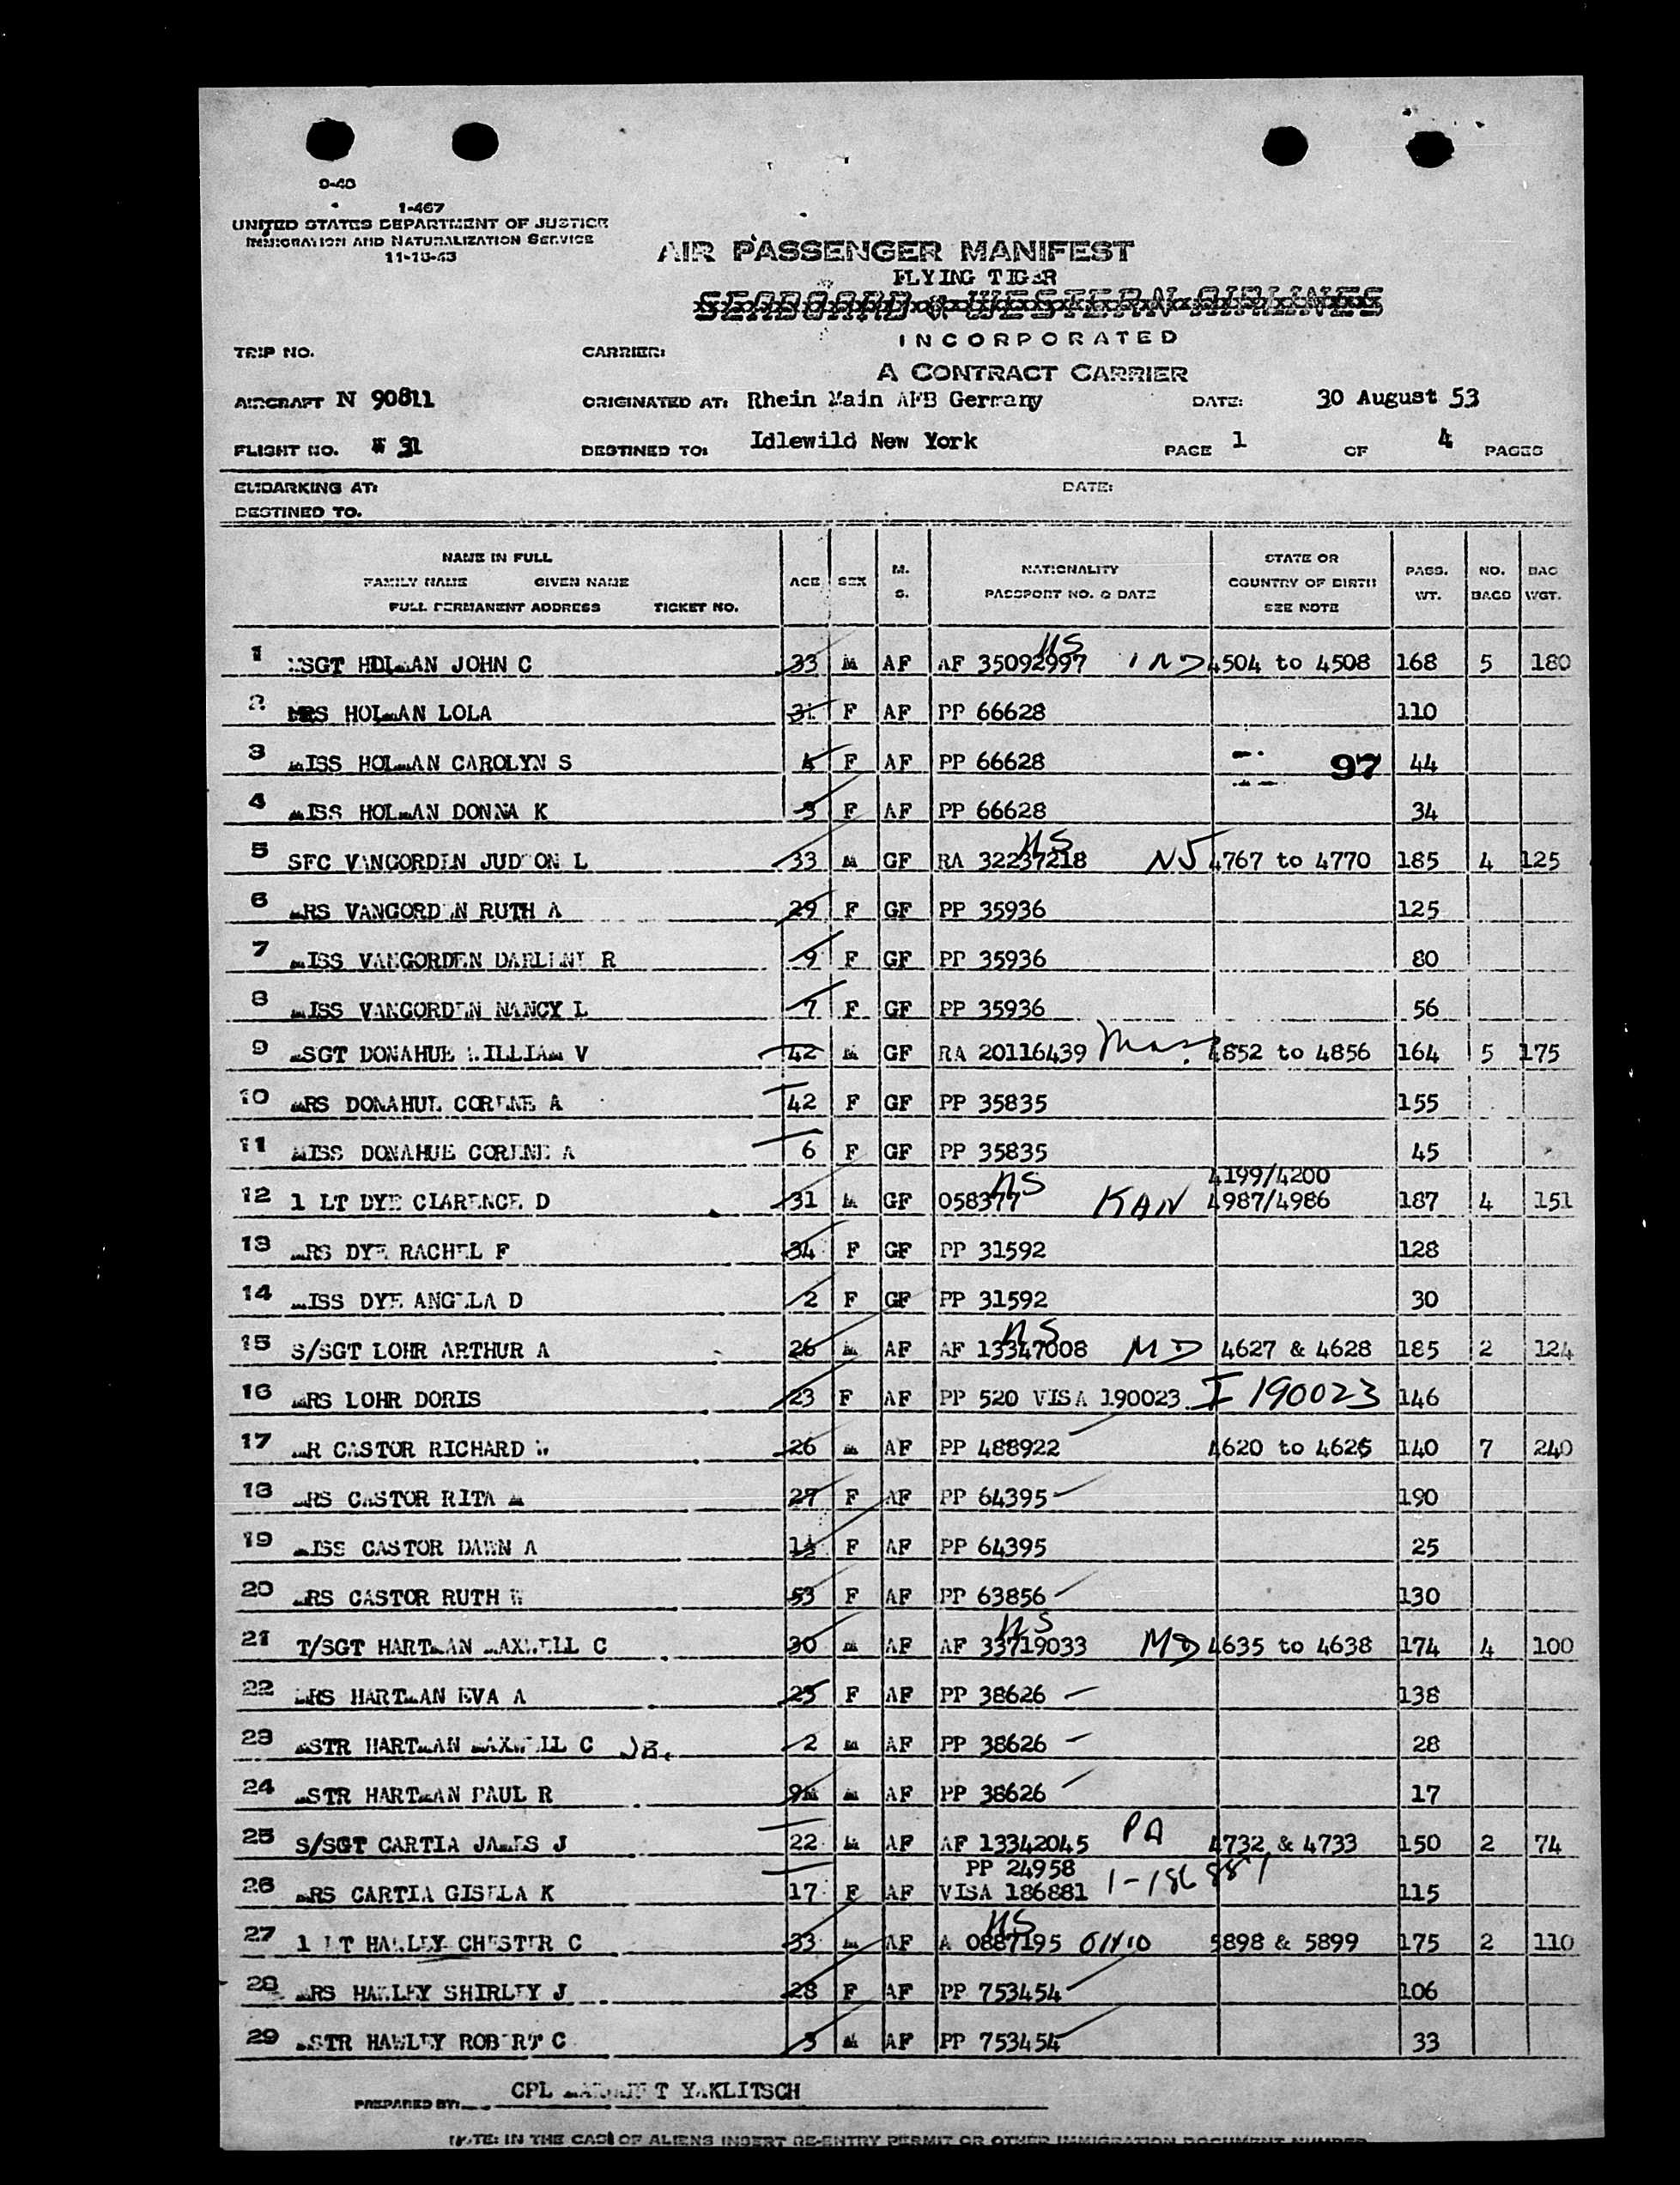 9-40
1-467
UNITED STATES DEPARTMENT OF JUSTICE
IMMIGRATION AND NATURALIZATION SERVICE
11-18-43
AIR PASSENGER MANIFEST
FLYING TIGER
SEABOARD & WESTERN AIRLINES
INCORPORATED
TRIP NO. CARRIER:
A CONTRACT CARRIER
AIRCRAFT N 90811 ORIGINATED AT: Rhein Main AFB Germany DATE: 30 August 53
FLIGHT NO. # 31 DESTINED TO: Idlewild New York PAGE 1 OF 4 PAGES
EMBARKING AT: DATE:
DESTINED TO.
NAME IN FULL AGE SEX M. S. NATIONALITY STATE OR PASS. WT. NO. BAGS BAG WGT.
FAMILY NAME GIVEN NAME PASSPORT NO. & DATE COUNTRY OF BIRTH
FULL PERMANENT ADDRESS TICKET NO. SEE NOTE
US
1 MSGT HOLMAN JOHN C 33 M AF AF 35092997 IND 4504 to 4508 168 5 180
2 MRS HOLMAN LOLA 31 F AF PP 66628 110
3 MISS HOLMAN CAROLYN S 4 F AF PP 66628 97 44
4 MISS HOLMAN DONNA K 3 F AF PP 66628 34
US
5 SFC VANGORDEN JUDSON L 33 M GF RA 32237218 NJ 4767 to 4770 185 4 125
6 MRS VANGORDEN RUTH A 29 F GF PP 35936 125
7 MISS VANGORDEN DARLENE R 9 F GF PP 35936 80
8 MISS VANGORDEN NANCY L 7 F GF PP 35936 56
9 MSGT DONAHUE WILLIAM V 42 M GF RA 20116439 Mass. 4852 to 4856 164 5 175
10 MRS DONAHUE CORENE A 42 F GF PP 35835 155
11 MISS DONAHUE CORENE A 6 F GF PP 35835 45
US 4199/4200
12 1 LT DYE CLARENCE D 31 M GF 058377 KAN 4987/4986 187 4 151
13 MRS DYE RACHEL F 34 F GF PP 31592 128
14 MISS DYE ANGELA D 2 F GF PP 31592 30
US
15 S/SGT LOHR ARTHUR A 26 M AF AF 13347008 MD 4627 & 4628 185 2 124
16 MRS LOHR DORIS 23 F AF PP 520 VISA 190023 I 190023 146
17 MR CASTOR RICHARD W 26 M AF PP 488922 4620 to 4626 140 7 240
18 MRS CASTOR RITA M 27 F AF PP 64395 190
19 MISS CASTOR DAWN A 1½ F AF PP 64395 25
20 MRS CASTOR RUTH W 53 F AF PP 63856 130
US
21 T/SGT HARTMAN MAXWELL C 30 M AF AF 33719033 MD 4635 to 4638 174 4 100
22 MRS HARTMAN EVA A 25 F AF PP 38626 138
23 MSTR HARTMAN MAXWELL C JR. 2 M AF PP 38626 28
24 MSTR HARTMAN PAUL R 9M M AF PP 38626 17
25 S/SGT CARTIA JAMES J 22 M AF AF 13342045 PA 4732 & 4733 150 2 74
PP 24958
26 MRS CARTIA GISELA K 17 F AF VISA 186881 1-186881 115
US
27 1 LT HAWLEY CHESTER C 33 M AF A 0887195 OHIO 5898 & 5899 175 2 110
28 MRS HAWLEY SHIRLEY J 28 F AF PP 753454 106
29 MSTR HAWLEY ROBERT C 3 M AF PP 753454 33
PREPARED BY: CPL YAKLITSCH
NOTE: IN THE CASE OF ALIENS INSERT RE-ENTRY PERMIT OR OTHER IMMIGRATION DOCUMENT NUMBER